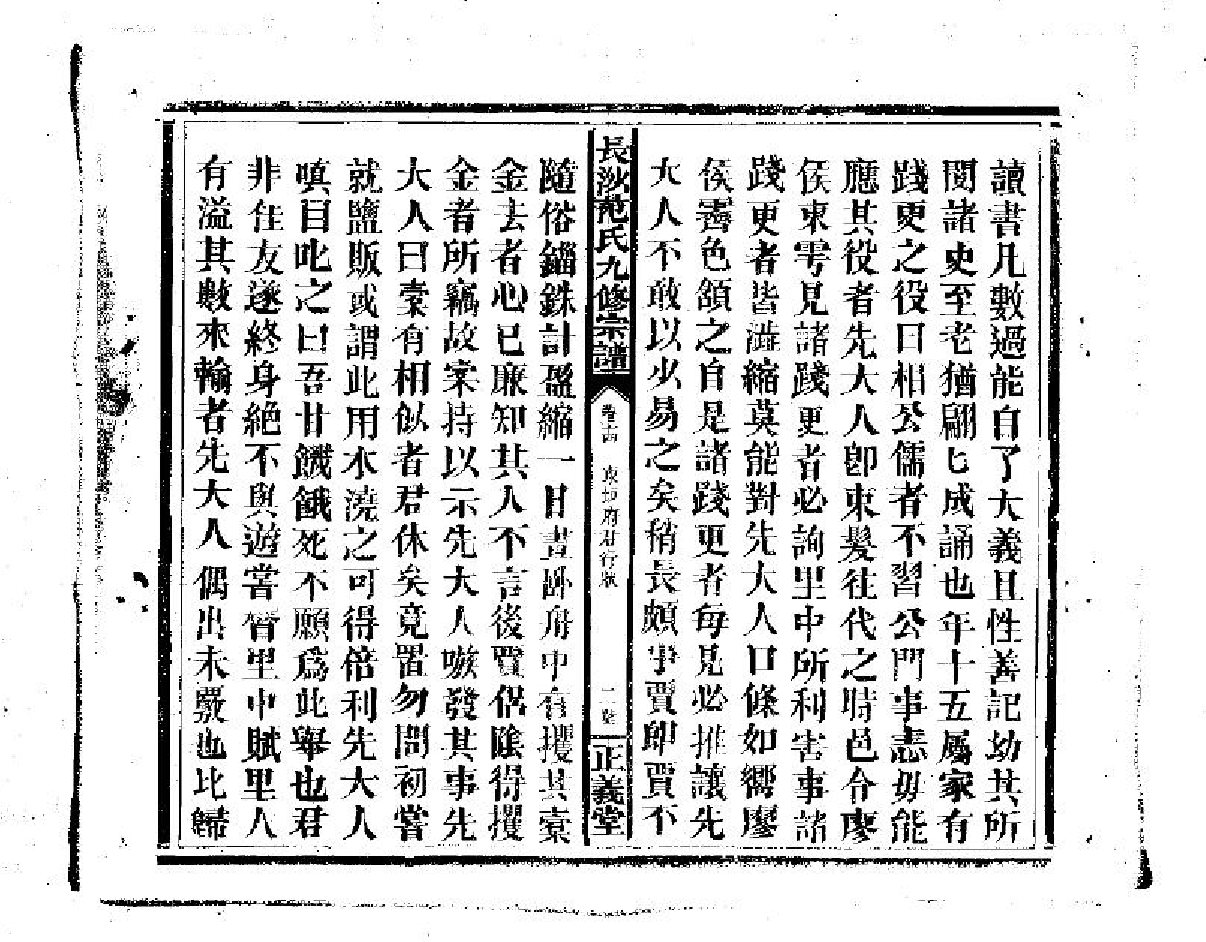 讀書凡數過能自了大義且性善記幼其所
閱諸史至老猶翩匕成誦也年十五屬家有
踐更之役曰相公儒者不習公門事恚毋能
應其役者先大人卽束髮往代之時邑令廖
侯東雩見諸踐更者必詢里中所利害事諸
踐更者皆澁縮莫能對先大人口條如嚮廖
侯霽色頷之自是諸踐更者每見必推讓先
大人不敢以少易之矣稍長頗事賈卽賈不
長沙范氏九修宗譜
府君行狀
正義堂
隨俗錙銖計盈縮一日晝臥舟中有攫其橐
金去者心已廉知其人不言後賈侶陰得攫
金者所竊故橐持以示先大人嗾發其事先
大人曰橐有相似者君休矣竟置勿問初嘗
就鹽販或謂此用水澆之可得倍利先大人
嗔目叱之曰吾甘饑餓死不願爲此舉也君
非佳友遂終身絕不與遊嘗督里中賦里人
有溢其數來輸者先大人偶出未覈也比歸